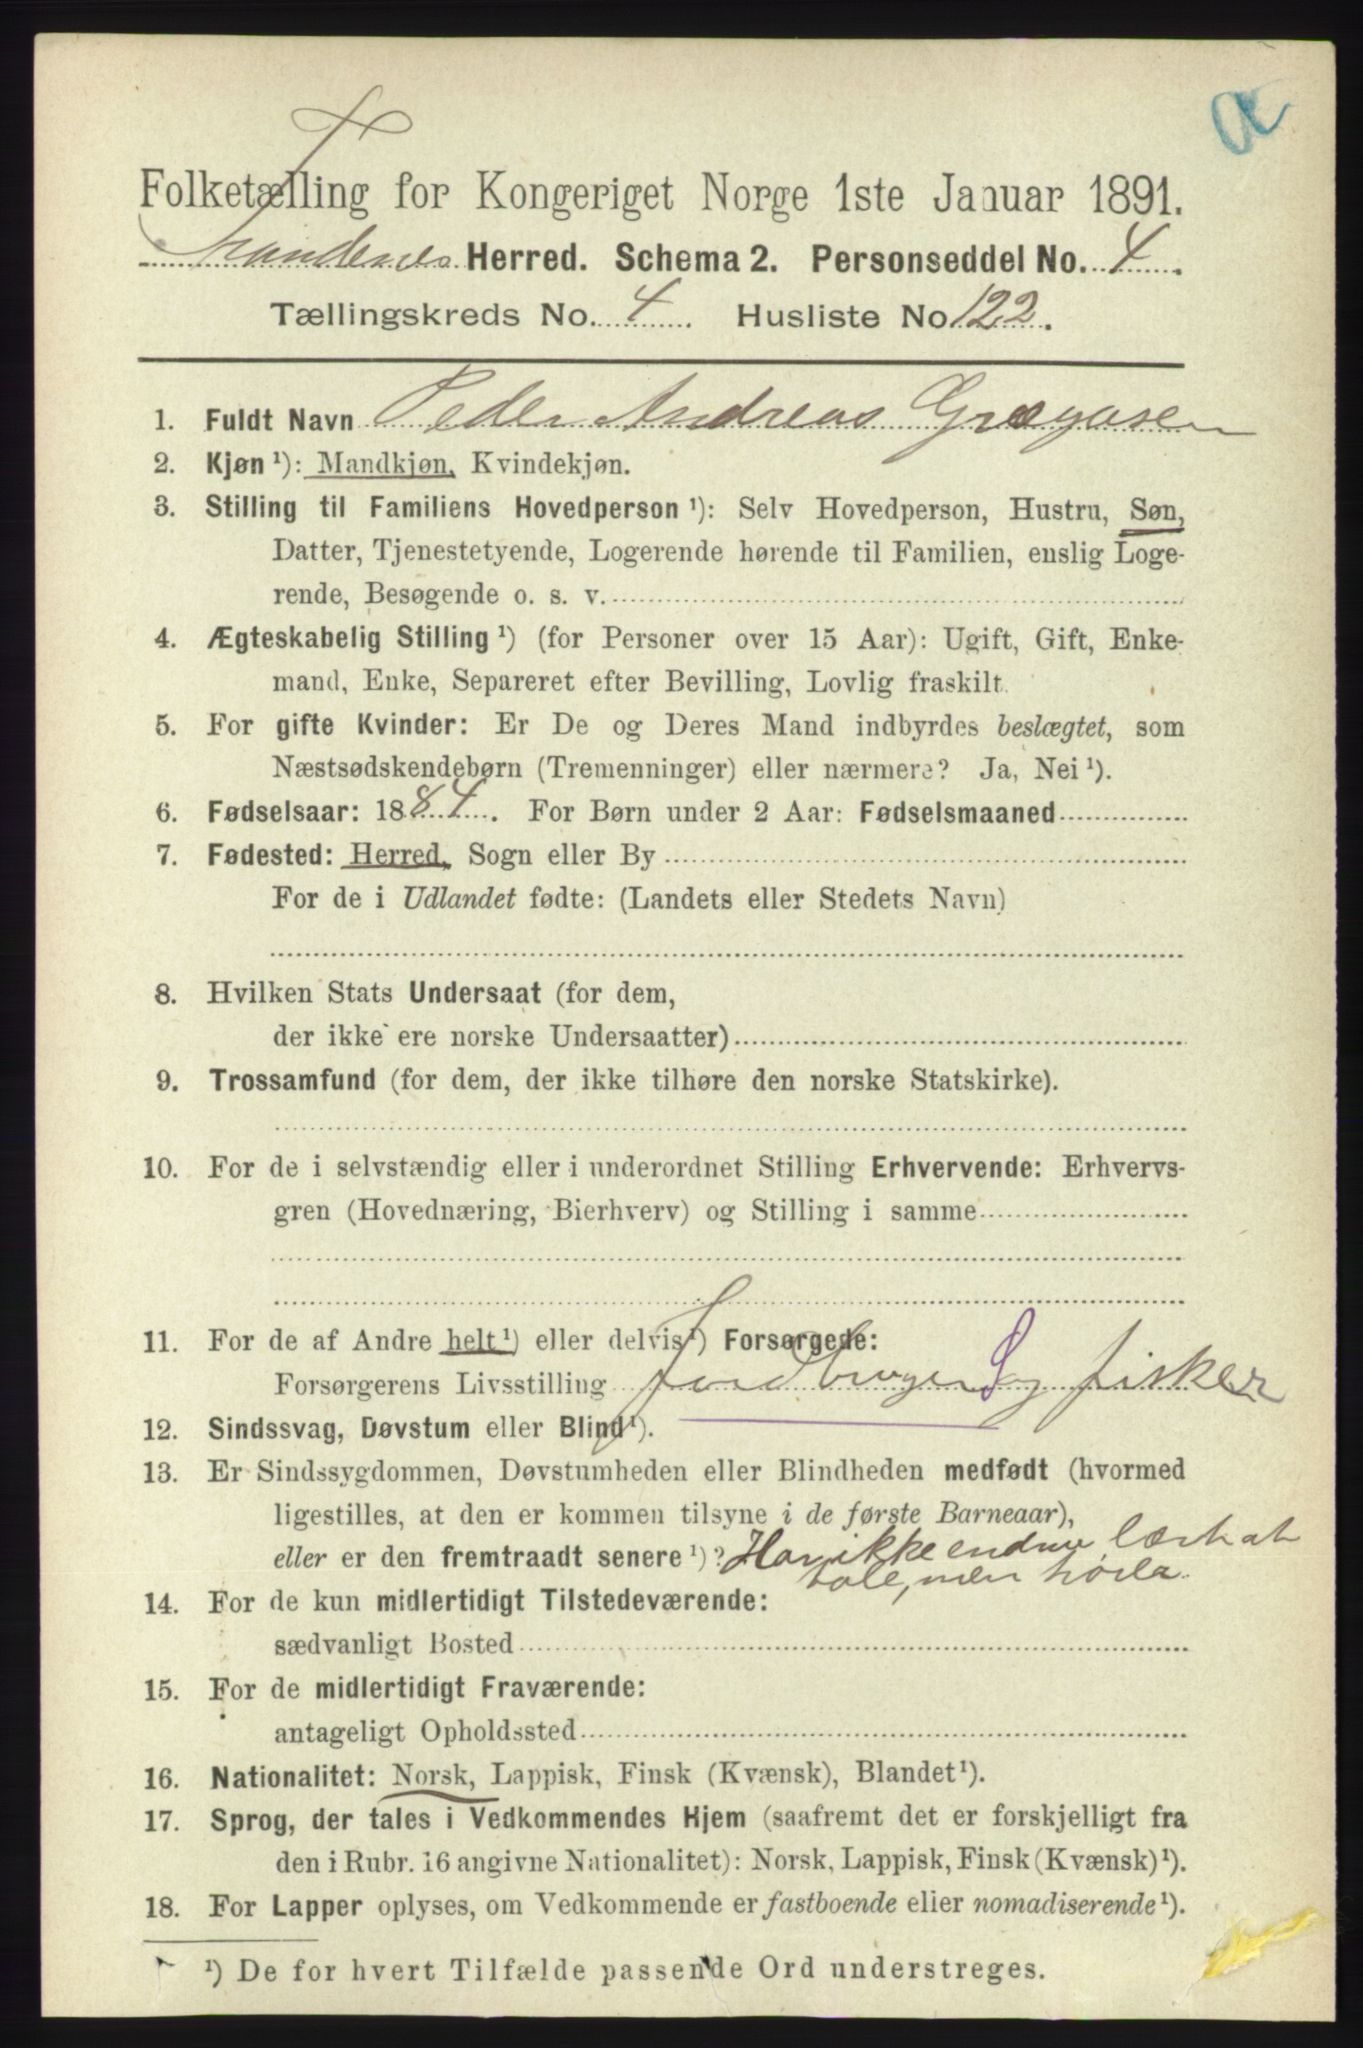 Œ
Folketælling for Kongeriget Norge 1ste Januar 1891.
Trondenes Herred. Schema 2. Personseddel No. 4.
Tællingskreds No. 4. Husliste No. 122.
1. Fuldt Navn Peder Andreas Grægusen
2. Kjøn ¹): Mandkjøn, Kvindekjøn.
3. Stilling til Familiens Hovedperson ¹): Selv Hovedperson, Hustru, Søn,
Datter, Tjenestetyende, Logerende hørende til Familien, enslig Loge-
rende, Besøgende o. s. v.
4. Ægteskabelig Stilling ¹) (for Personer over 15 Aar): Ugift, Gift, Enke-
mand, Enke, Separeret efter Bevilling, Lovlig fraskilt.
5. For gifte Kvinder: Er De og Deres Mand indbyrdes beslægtet, som
Næstsødskendebørn (Tremenninger) eller nærmere? Ja, Nei ¹).
6. Fødselsaar: 1884. For Børn under 2 Aar: Fødselsmaaned
7. Fødested: Herred, Sogn eller By
For de i Udlandet fødte: (Landets eller Stedets Navn)
8. Hvilken Stats Undersaat (for dem,
der ikke ere norske Undersaatter)
9. Trossamfund (for dem, der ikke tilhøre den norske Statskirke).
10. For de i selvstændig eller i underordnet Stilling Erhvervende: Erhvervs-
gren (Hovednæring, Bierhverv) og Stilling i samme
11. For de af Andre helt ¹) eller delvis ¹) Forsørgede:
Forsørgerens Livsstilling Jordbruger S og fisker
12. Sindssvag, Døvstum eller Blind ¹).
13. Er Sindssygdommen, Døvstumheden eller Blindheden medfødt (hvormed
ligestilles, at den er kommen tilsyne i de første Barneaar),
eller er den fremtraadt senere ¹)? Har ikke endnu lært at
tale, men hører
14. For de kun midlertidigt Tilstedeværende:
sædvanligt Bosted
15. For de midlertidigt Fraværende:
antageligt Opholdssted
16. Nationalitet: Norsk, Lappisk, Finsk (Kvænsk), Blandet ¹).
17. Sprog, der tales i Vedkommendes Hjem (saafremt det er forskjelligt fra
den i Rubr. 16 angivne Nationalitet): Norsk, Lappisk, Finsk (Kvænsk) ¹).
18. For Lapper oplyses, om Vedkommende er fastboende eller nomadiserende ¹).
¹) De for hvert Tilfælde passende Ord understreges.